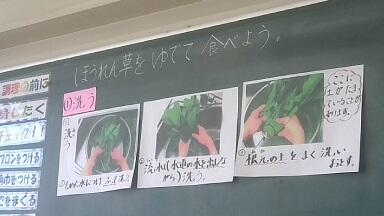 ほうれん草をゆでて食べよう。
調理の前に
身じたく
チェック!!
プロンをつける
角巾をつける
でをまくる
①洗う
洗う
ため水につけ
流水(水道の水を出しな
がら)洗う。
ここに
土がたま
っていることが
あります。
根元の土をよく洗い
おとす。